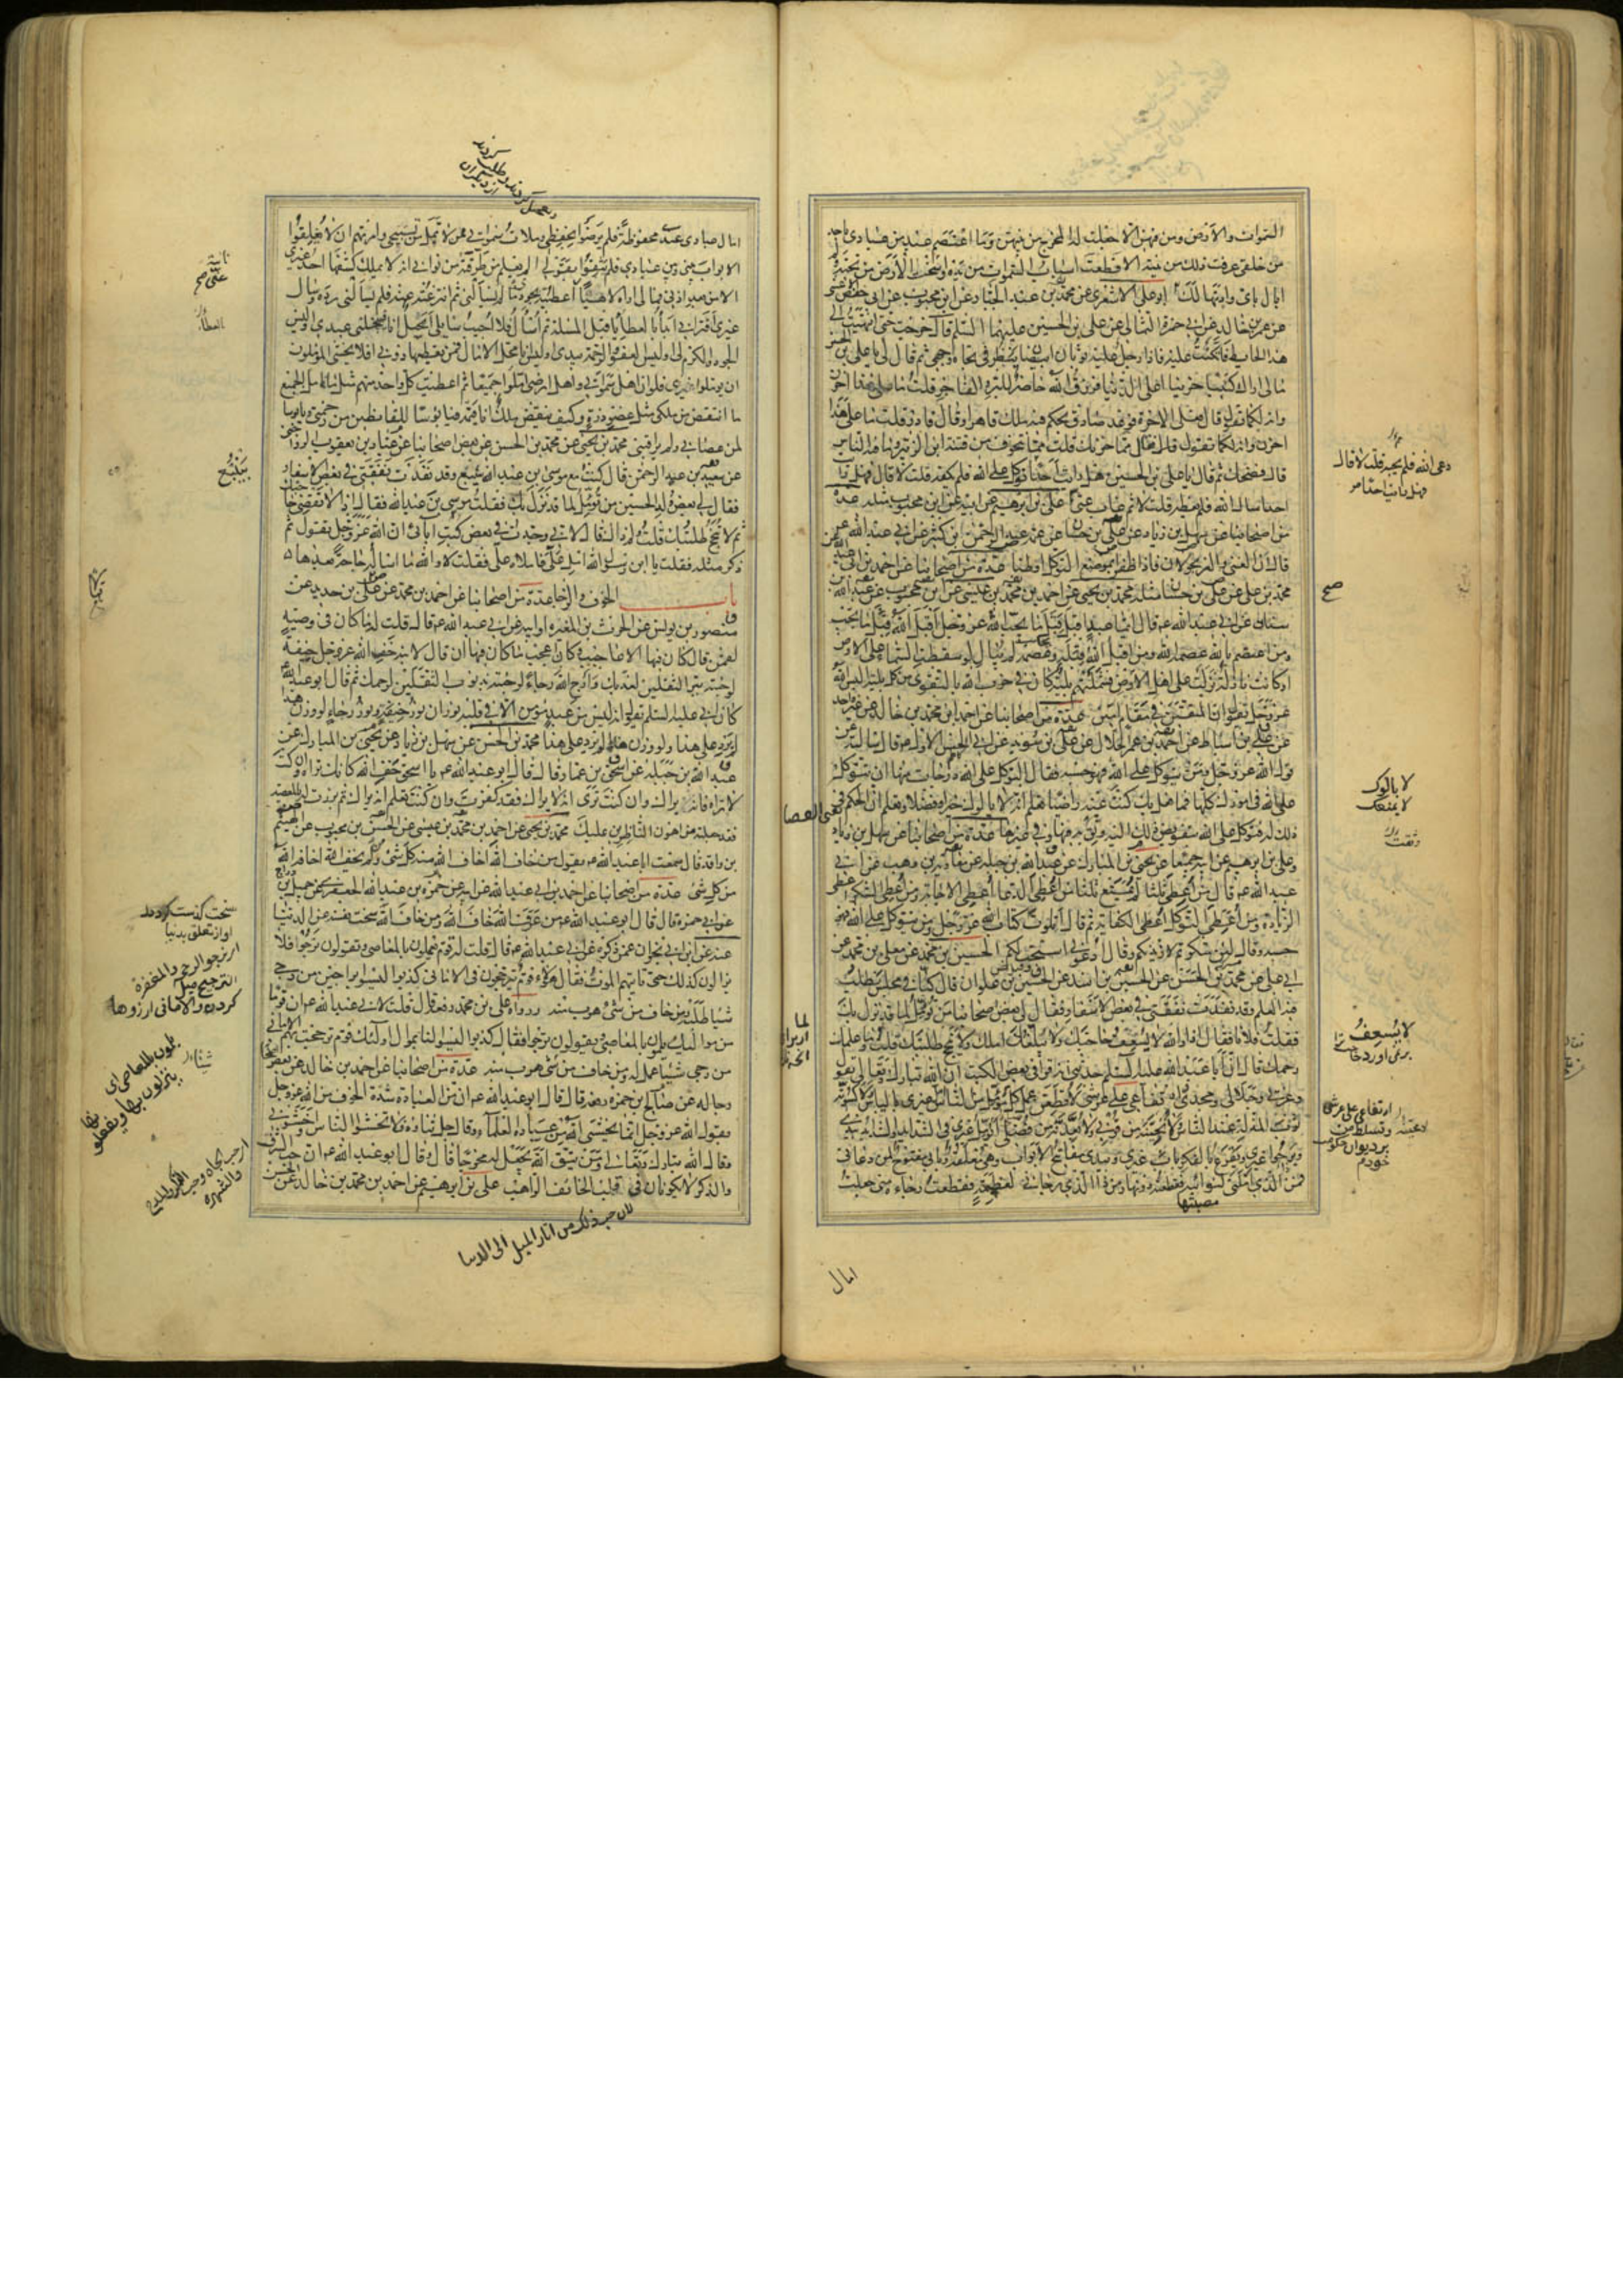 السموات والارض ومن فيهن الا جعلت له المخرج من بينهن وما اعتصم عبد من عبادي باحد
من خلقي عرفت ذلك من نيته الا قطعت اسباب السموات من يديه واسخت الارض من تحته ولم
ابال باي واد تهالك ابو علي الاشعري عن محمد بن عبد الجبار عن ابن محبوب عن ابي حفص الاعشى
عن عمر بن خالد عن ابي حمزة الثمالي عن علي بن الحسين عليهما السلم قال خرجت حتى انتهيت الى
هذا الحايط فاتكئت عليه فاذا رجل عليه ثوبان ابيضان ينظر في تجاه وجهي ثم قال لي يا علي بن الحسين
مالي اراك كئيبا حزينا اعلى الدنيا فرزق الله حاضر للبر والفاجر قلت ما على هذا احزن
وانه لكما تقول قال فعلى الاخرة فوعد صادق يحكم فيه ملك قاهر او قال قادر قلت ما على هذا
احزن وانه لكما تقول فقال مما حزنك قلت مما نتخوف من فتنة ابن الزبير وما فيه الناس
قال فضحك ثم قال يا علي بن الحسين هل رايت احدا توكل على الله فلم يكفه قلت لا قال فهل رايت
احدا سال الله فلم يعطه قلت لا ثم غاب عني علي بن ابرهيم عن ابيه عن ابن محبوب مثله عدة
من اصحابنا عن سهل بن زياد عن علي بن حسان عن عمه عبد الرحمن بن كثير عن ابي عبد الله ع
قال ان الغنى والعز يجولان فاذا ظفرا بموضع التوكل اوطنا عدة من اصحابنا عن احمد بن ابي عبد الله عن
محمد بن علي عن علي بن حسان مثله محمد بن يحيى عن احمد بن محمد بن عيسى عن ابن محبوب عن عبد الله بن
سنان عن ابي عبد الله ع قال ايما عبد اقبل قبل ما يحب الله عز وجل اقبل الله قبل ما يحب
ومن اعتصم بالله عصمه الله ومن اقبل الله قبله وعصمه لم يبال لو سقطت السماء على الارض
او كانت نازلة نزلت على اهل الارض فشملتهم بلية كان في حزب الله بالتقوى من كل بلية اليس الله
عز وجل يقول ان المتقين في مقام امين عدة من اصحابنا عن احمد بن محمد بن خالد عن غير واحد
عن علي بن اسباط عن احمد بن عمر الحلال عن علي بن سويد عن ابي الحسن الاول ع قال سالته عن
قول الله عز وجل ومن يتوكل على الله فهو حسبه فقال التوكل على الله درجات منها ان تتوكل
على الله في امورك كلها فما فعل بك كنت عنه راضيا تعلم انه لا يالوك خيرا وفضلا وتعلم ان الحكم في
ذلك له فتوكل على الله بتفويض ذلك اليه وثق به فيها وفي غيرها عدة من اصحابنا عن سهل بن زياد
وعلي بن ابرهيم عن ابيه جميعا عن يحيى بن المبارك عن عبد الله بن جبلة عن معوية بن وهب عن ابي
عبد الله ع قال من اعطي ثلثا لم يمنع ثلثا من اعطي الدعاء اعطي الاجابة ومن اعطي الشكر اعطي
الزيادة ومن اعطي التوكل اعطي الكفاية ثم قال اتلوت كتاب الله عز وجل ومن يتوكل على الله فهو
حسبه وقال لئن شكرتم لازيدنكم وقال ادعوني استجب لكم الحسين بن محمد عن معلى بن محمد عن
ابي علي عن محمد بن الحسن عن الحسين بن راشد عن الحسين بن علوان قال كنا في مجلس يطلب
فيه العلم وقد نفدت نفقتي في بعض الاسفار فقال لي بعض اصحابنا من تؤمل لما قد نزل بك
فقلت فلانا فقال اذا والله لا يسعف حاجتك ولا يبلغك املك ولا تنجح طلبتك قلت وما علمك
رحمك قال ان ابا عبد الله عليه السلم حدثني انه قرا في بعض الكتب ان الله تبارك وتعالى يقول
وعزتي وجلالي ومجدي وارتفاعي على عرشي لاقطعن امل كل مؤمل من الناس غيري بالياس ولاكسونه
ثوب المذلة عند الناس ولانحينه من قربي ولابعدنه من فضلي ايؤمل غيري في الشدايد والشدايد بيدي
ويرجو غيري ويقرع بالفكر باب غيري وبيدي مفاتيح الابواب وهي مغلقة وبابي مفتوح لمن دعاني
فمن الذي املني لنوائبه فقطعته دونها ومن ذا الذي رجاني لعظيمة فقطعت رجاءه مني جعلت
امال
دعى الله فلم يجبه قلت لا قال
فهل رايت احدا
صح
لا يالوك
لا يمنعك
لا يسعف
برنمي آورد حاجت
اي تفاعي على عرشي
امال عبادي عندي محفوظة فلم يرضوا بحفظي وملات سمواتي ممن لا يمل من تسبيحي وامرتهم ان لا يغلقوا
الابواب بيني وبين عبادي فلم يثقوا بقولي الم يعلم من طرقته من نوائبي انه لا يملك كشفها احد غيري
الا من بعد اذني فما لي اراه لاهيا عني اعطيته بجودي ما لم يسالني ثم انتزعته عنه فلم يسالني رده وسال
غيري افتراني ابدا بالعطاء قبل المسئلة ثم اسال فلا اجيب سايلي ابخيل انا فيبخلني عبدي او ليس
الجود والكرم لي او ليس العفو والرحمة بيدي او ليس انا محل الامال فمن يقطعها دوني افلا يخشى المؤملون
ان يؤملوا غيري فلو ان اهل سمواتي واهل ارضي املوا جميعا ثم اعطيت كل واحد منهم مثل ما امل الجميع
ما انتقص من ملكي مثل عضو ذرة وكيف ينقص ملك انا قيمه فيا بؤسا للقانطين من رحمتي ويا بؤسا
لمن عصاني ولم يراقبني محمد بن يحيى عن محمد بن الحسن عن بعض اصحابنا عن عباد بن يعقوب الرواجني
عن سعيد بن عبد الرحمن قال كنت مع موسى بن عبد الله بينبع وقد نفدت نفقتي في بعض الاسفار
فقال لي بعض ولد الحسين من تؤمل لما قد نزل بك فقلت موسى بن عبد الله فقال اذا لا تقضى حاجتك
ثم لا تنجح طلبتك قلت ولم ذاك قال لاني وجدت في بعض كتب ابائي ان الله عز وجل يقول ثم
ذكر مثله فقلت يا ابن رسول الله امل علي فاملاه علي فقلت لا والله ما اساله حاجة بعدها
باب الخوف والرجا عدة من اصحابنا عن احمد بن محمد عن علي بن حديد عن
منصور بن يونس عن الحرث بن المغيرة او ابيه عن ابي عبد الله ع قال قلت له ما كان في وصية
لقمن قال كان فيها الاعاجيب وكان اعجب ما كان فيها ان قال لابنه خف الله عز وجل خيفة
لو جئته ببر الثقلين لعذبك وارج الله رجاء لو جئته بذنوب الثقلين لرحمك ثم قال ابو عبد الله ع
كان ابي عليه السلم يقول انه ليس من عبد مؤمن الا في قلبه نوران نور خيفة ونور رجاء لو وزن هذا
لم يزد على هذا ولو وزن هذا لم يزد على هذا محمد بن الحسن عن سهل بن زياد عن يحيى بن المبارك عن
عبد الله بن جبلة عن اسحق بن عمار قال قال ابو عبد الله ع يا اسحق خف الله كانك تراه وان كنت
لا تراه فانه يراك وان كنت ترى انه لا يراك فقد كفرت وان كنت تعلم انه يراك ثم برزت له بالمعصية
فقد جعلته من اهون الناظرين عليك محمد بن يحيى عن احمد بن محمد بن عيسى عن الحسن بن محبوب عن الهيثم
بن واقد قال سمعت ابا عبد الله ع يقول من خاف الله اخاف الله منه كل شئ ومن لم يخف الله اخافه الله
من كل شئ عدة من اصحابنا عن احمد بن ابي عبد الله عن ابيه عن حمزة بن عبد الله الجعفري عن جميل بن دراج
عن ابي حمزة قال قال ابو عبد الله ع من عرف الله خاف الله ومن خاف الله سخت نفسه عن الدنيا
عنه عن ابن ابي نجران عمن ذكره عن ابي عبد الله ع قال قلت له قوم يعملون بالمعاصي ويقولون نرجو فلا
يزالون كذلك حتى ياتيهم الموت فقال هؤلاء قوم يترجحون في الاماني كذبوا ليسوا براجين من رجى
شيا طلبه ومن خاف من شئ هرب منه ورواه علي بن محمد رفعه قال قلت لابي عبد الله ع ان قوما
من مواليك يلمون بالمعاصي ويقولون نرجوا فقال كذبوا ليسوا لنا بموال اولئك قوم ترجحت بهم الاماني
من رجى شيئا عمل له ومن خاف من شئ هرب منه عدة من اصحابنا عن احمد بن خالد عن بعض
رجاله عن صالح بن حمزة رفعه قال قال ابو عبد الله ع ان من العبادة شدة الخوف من الله عز وجل
يقول الله عز وجل انما يخشى الله من عباده العلماء وقال جل ثناؤه فلا تخشوا الناس واخشوني
وقال الله تبارك وتعالى ومن يتق الله يجعل له مخرجا قال وقال ابو عبد الله ع ان حب الشرف
والذكر لا يكونان في قلب الخائف الراهب علي بن ابرهيم عن احمد بن محمد بن خالد عن الحسن
بينبع
اي نرجو الرحمة والمغفرة
الترجح ميل
كردن والاماني ارزوها
يلمون بالمعاصي اي
ينزلون بها ويفعلونها
لان حب ذلك من اثار الميل الى الدنيا